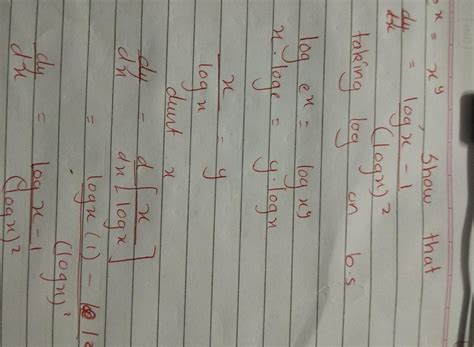 x = x^y , show that
dy/dx = log x - 1 / (log x)^2
taking log on b.s
log e^x = log x^y
x. log e = y. log x
x / log x = y
dwrt x
dy/dx = d/dx [ x / log x ]
= log x (1) - / (log x)^2
dy/dx = log x - 1 / (log x)^2